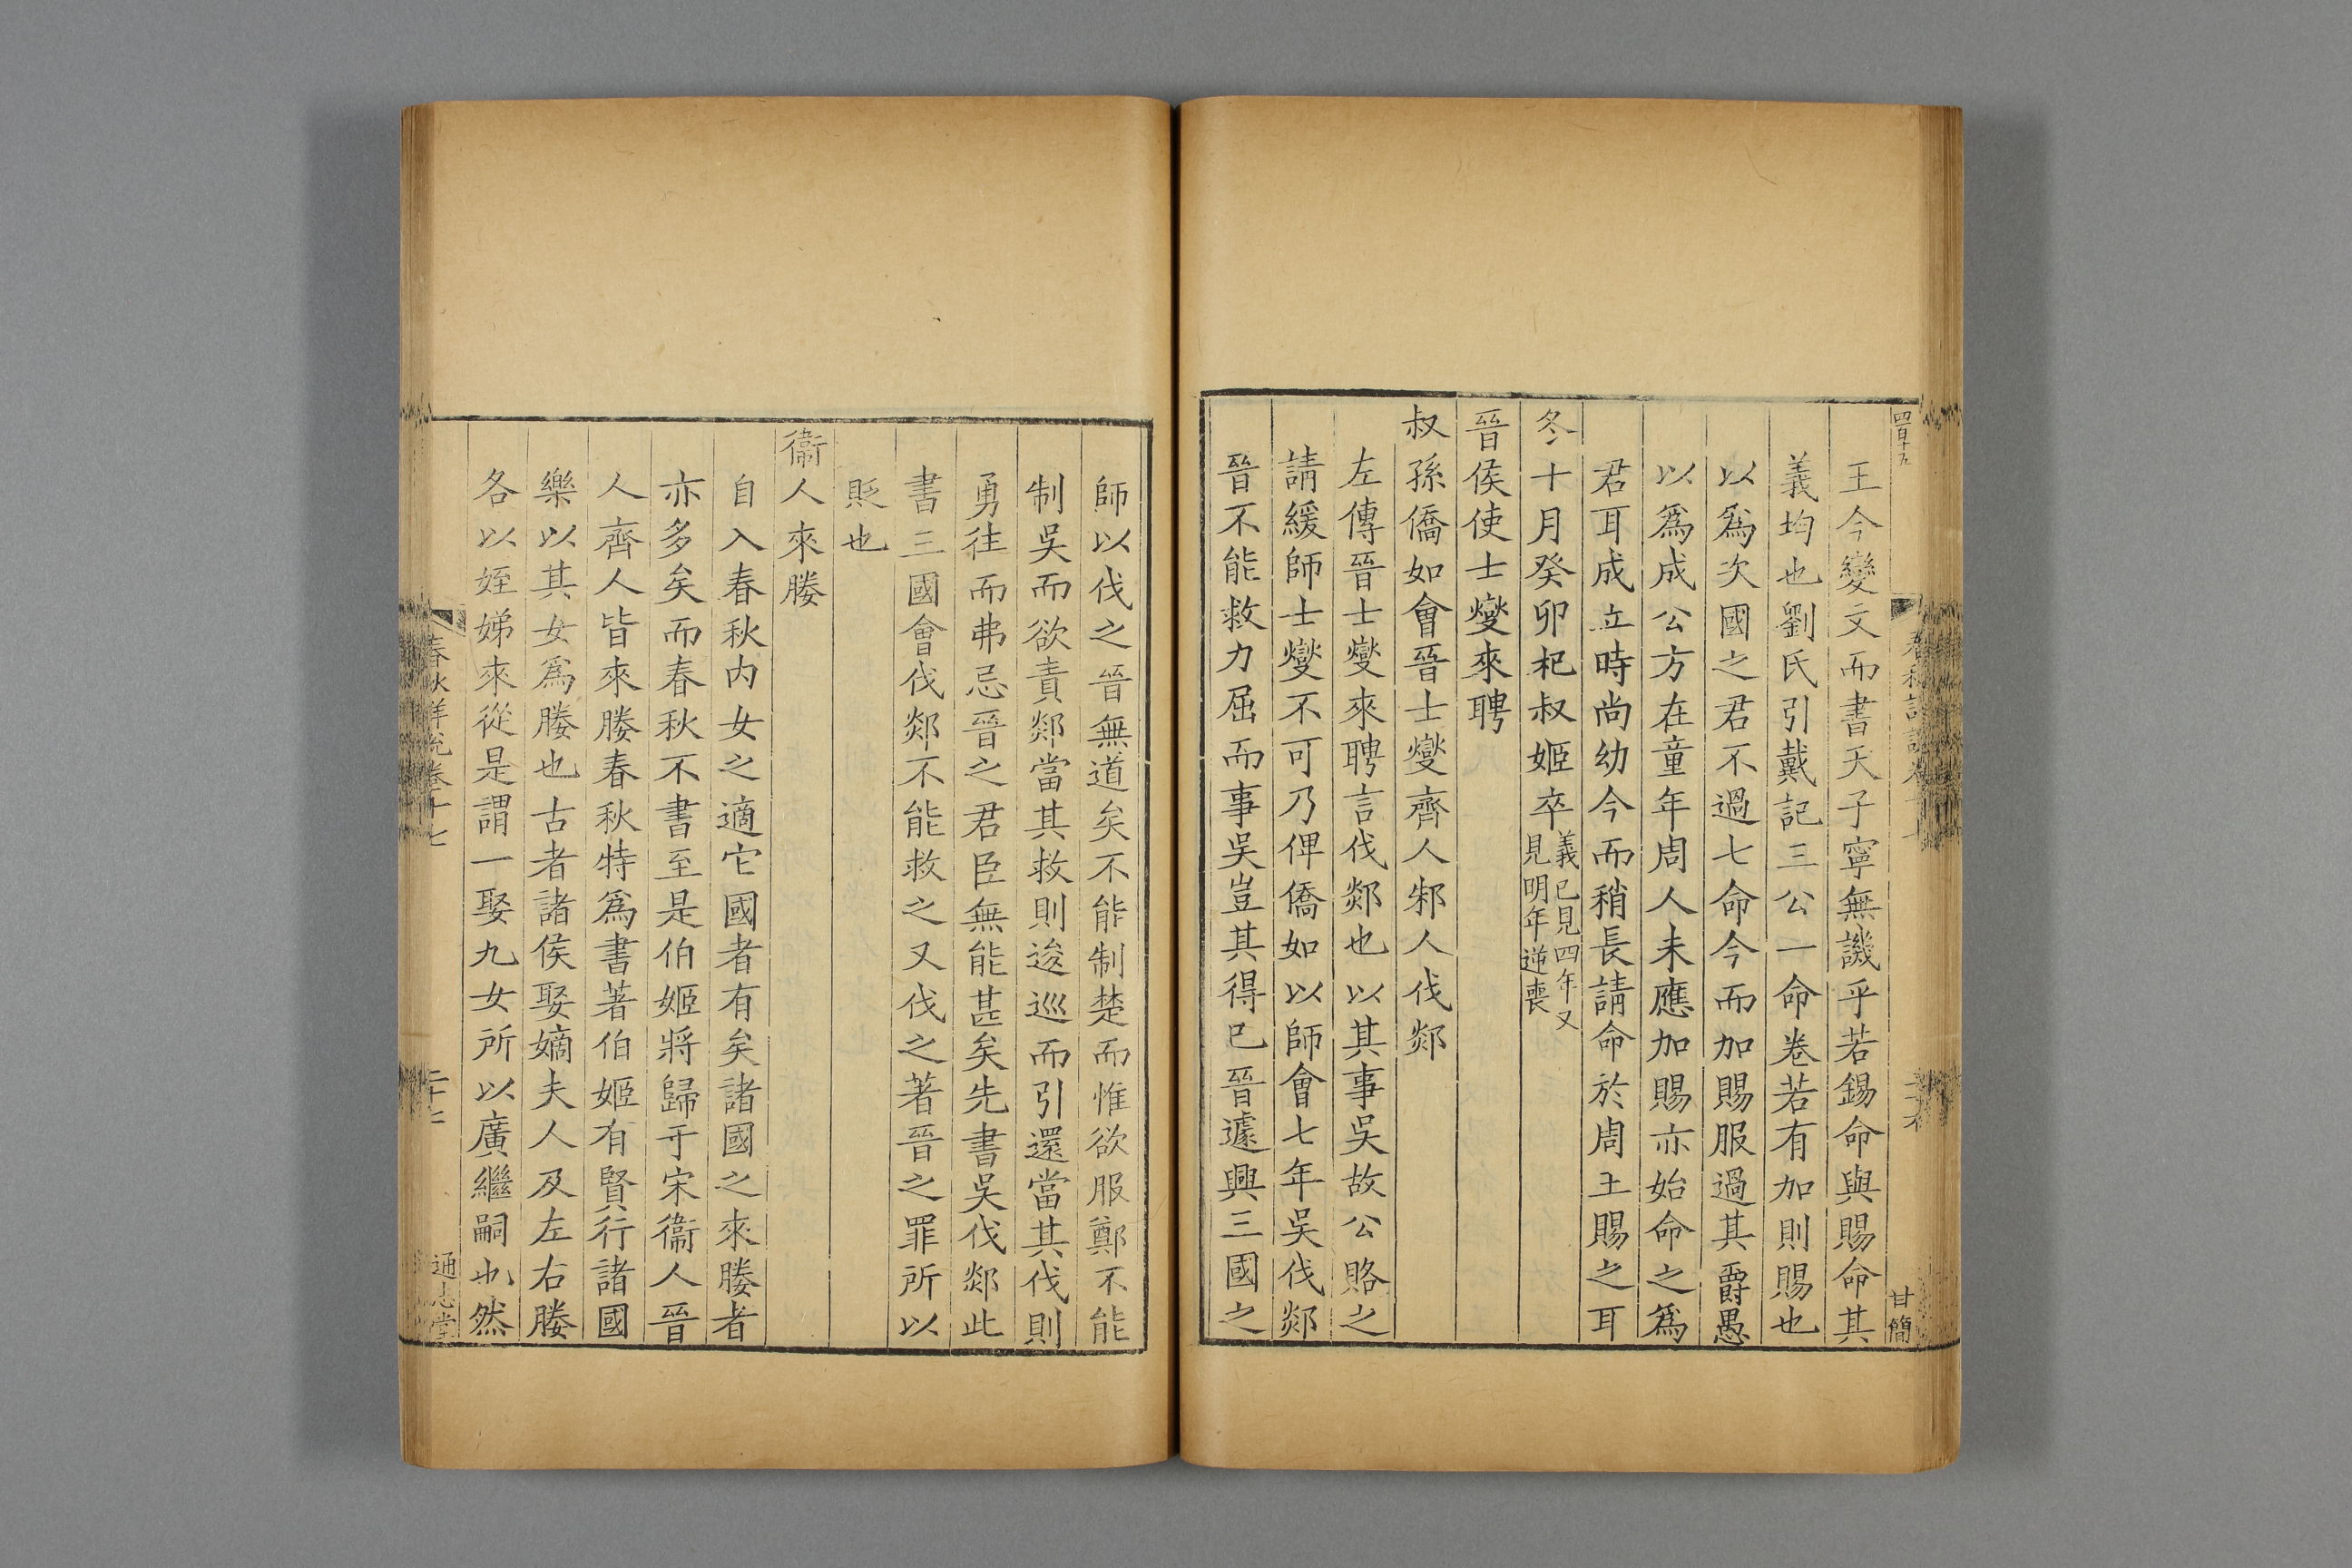 四百十五
甘簡
王今變文而書天子寧無譏乎若錫命與賜命其
義均也劉氏引戴記三公一命卷若有加則賜也
以爲次國之君不過七命今而加賜服過其爵愚
以爲成公方在童年周人未應加賜亦始命之爲
君耳成立時尚幼今而稍長請命於周王賜之耳
冬十月癸卯杞叔姬卒義已見四年又
見明年逆喪
晉侯使士燮來聘
叔孫僑如會晉士燮齊人邾人伐郯
左傳晉士燮來聘言伐郯也以其事吳故公賂之
請緩師士燮不可乃俾僑如以師會七年吳伐郯
晉不能救力屈而事吳豈其得已晉遽興三國之
師以伐之晉無道矣不能制楚而惟欲服鄭不能
制吳而欲責郯當其救則逡巡而引還當其伐則
勇往而弗忌晉之君臣無能甚矣先書吳伐郯此
書三國會伐郯不能救之又伐之著晉之罪所以
貶也
衞人來媵
自入春秋内女之適它國者有矣諸國之來媵者
亦多矣而春秋不書至是伯姬將歸于宋衞人晉
人齊人皆來媵春秋特爲書著伯姬有賢行諸國
樂以其女爲媵也古者諸侯娶嫡夫人及左右媵
各以姪娣來從是謂一娶九女所以廣繼嗣也然
春秋詳說卷十七
二十七
通志堂